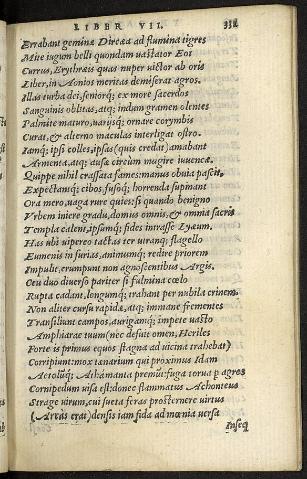 LIBER VII.
Errabant geminæ Dircæa ad flumina tigres
Mite iugum belli quondam uastator Eoi
Currus, Erythræis quas nuper uictor ab oris
Liber, in Aonios meritas demiserat agros.
Illas turba dei, seniorq; ex more sacerdos
Sanguinis oblitas, atq; indum gramen olentes
Palmite maturo, uarijsq; ornare corymbis
Curat, & alterno maculas interligat ostro.
Iamq; ipsi colles, ipsas (quis credat) amabant
Armenta, atq; ausæ circum mugire iuuencæ.
Quippe nihil crassata fames: manus obuia pascit,
Expectantq; cibos, fusoq; horrenda supinant
Ora mero, uaga rure quies: si quando benigno
Vrbem iniere gradu, domus omnis, & omnia sacris
Templa calent, ipsumq; fides intrasse Lyæum.
Has ubi uipereo tactas ter utranq; flagello
Eumenis in furias, animumq; redire priorem
Impulit, erumpunt non agnoscentibus Argis.
Ceu duo diuerso pariter si fulmina cœlo
Rupta cadant, longumq; trahant per nubila crinem.
Non aliter cursu rapidæ, atq; immane frementes
Transiliunt campos, aurigamq; impete uasto
Amphiaraë tuum (nec defuit omen, Heriles
Forte is primus equos stagna ad uicina trahebat)
Corripiunt: mox tænarium qui proximus Idam
Aetoliũq; Athamanta premũt: fuga torua p agros
Cornipedum uisa est: donec flammatus Achonteus
Strage uirum, cui sueta feras prosternere uirtus
(Arcas erat) densis iam fida ad mœnia uersa
Inseq